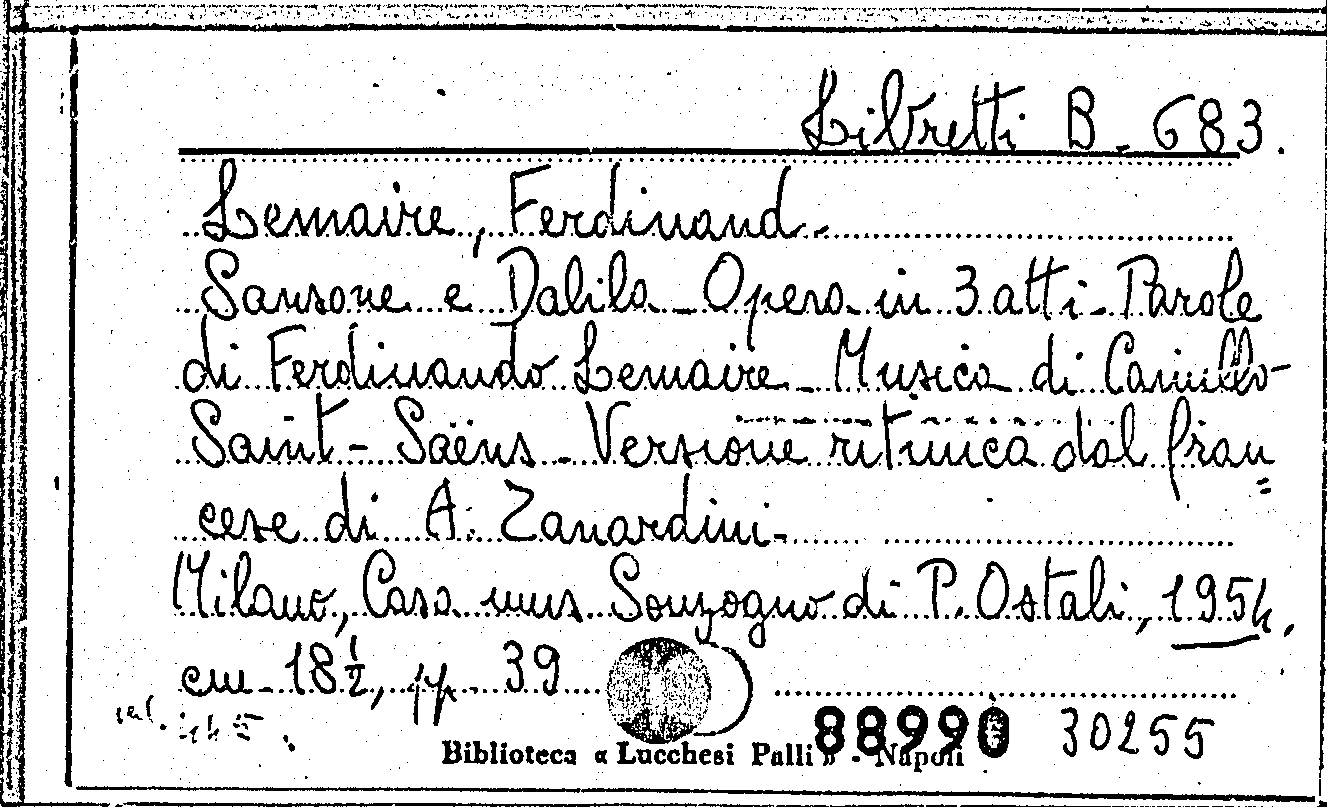 Libretti B. 683.
Lemaire, Ferdinand.
Sansone e Dalila - Opera in 3 atti - Parole
di Ferdinando Lemaire - Musica di Camillo
Saint - Saëns - Versione ritmica dal fran=
cese di A. Zanardini -
Milano, Casa mus Sonzogno di P. Ostali, 1954.
cm 18 ½, pp. 39
88990 30255
Biblioteca « Lucchesi Palli » - Napoli